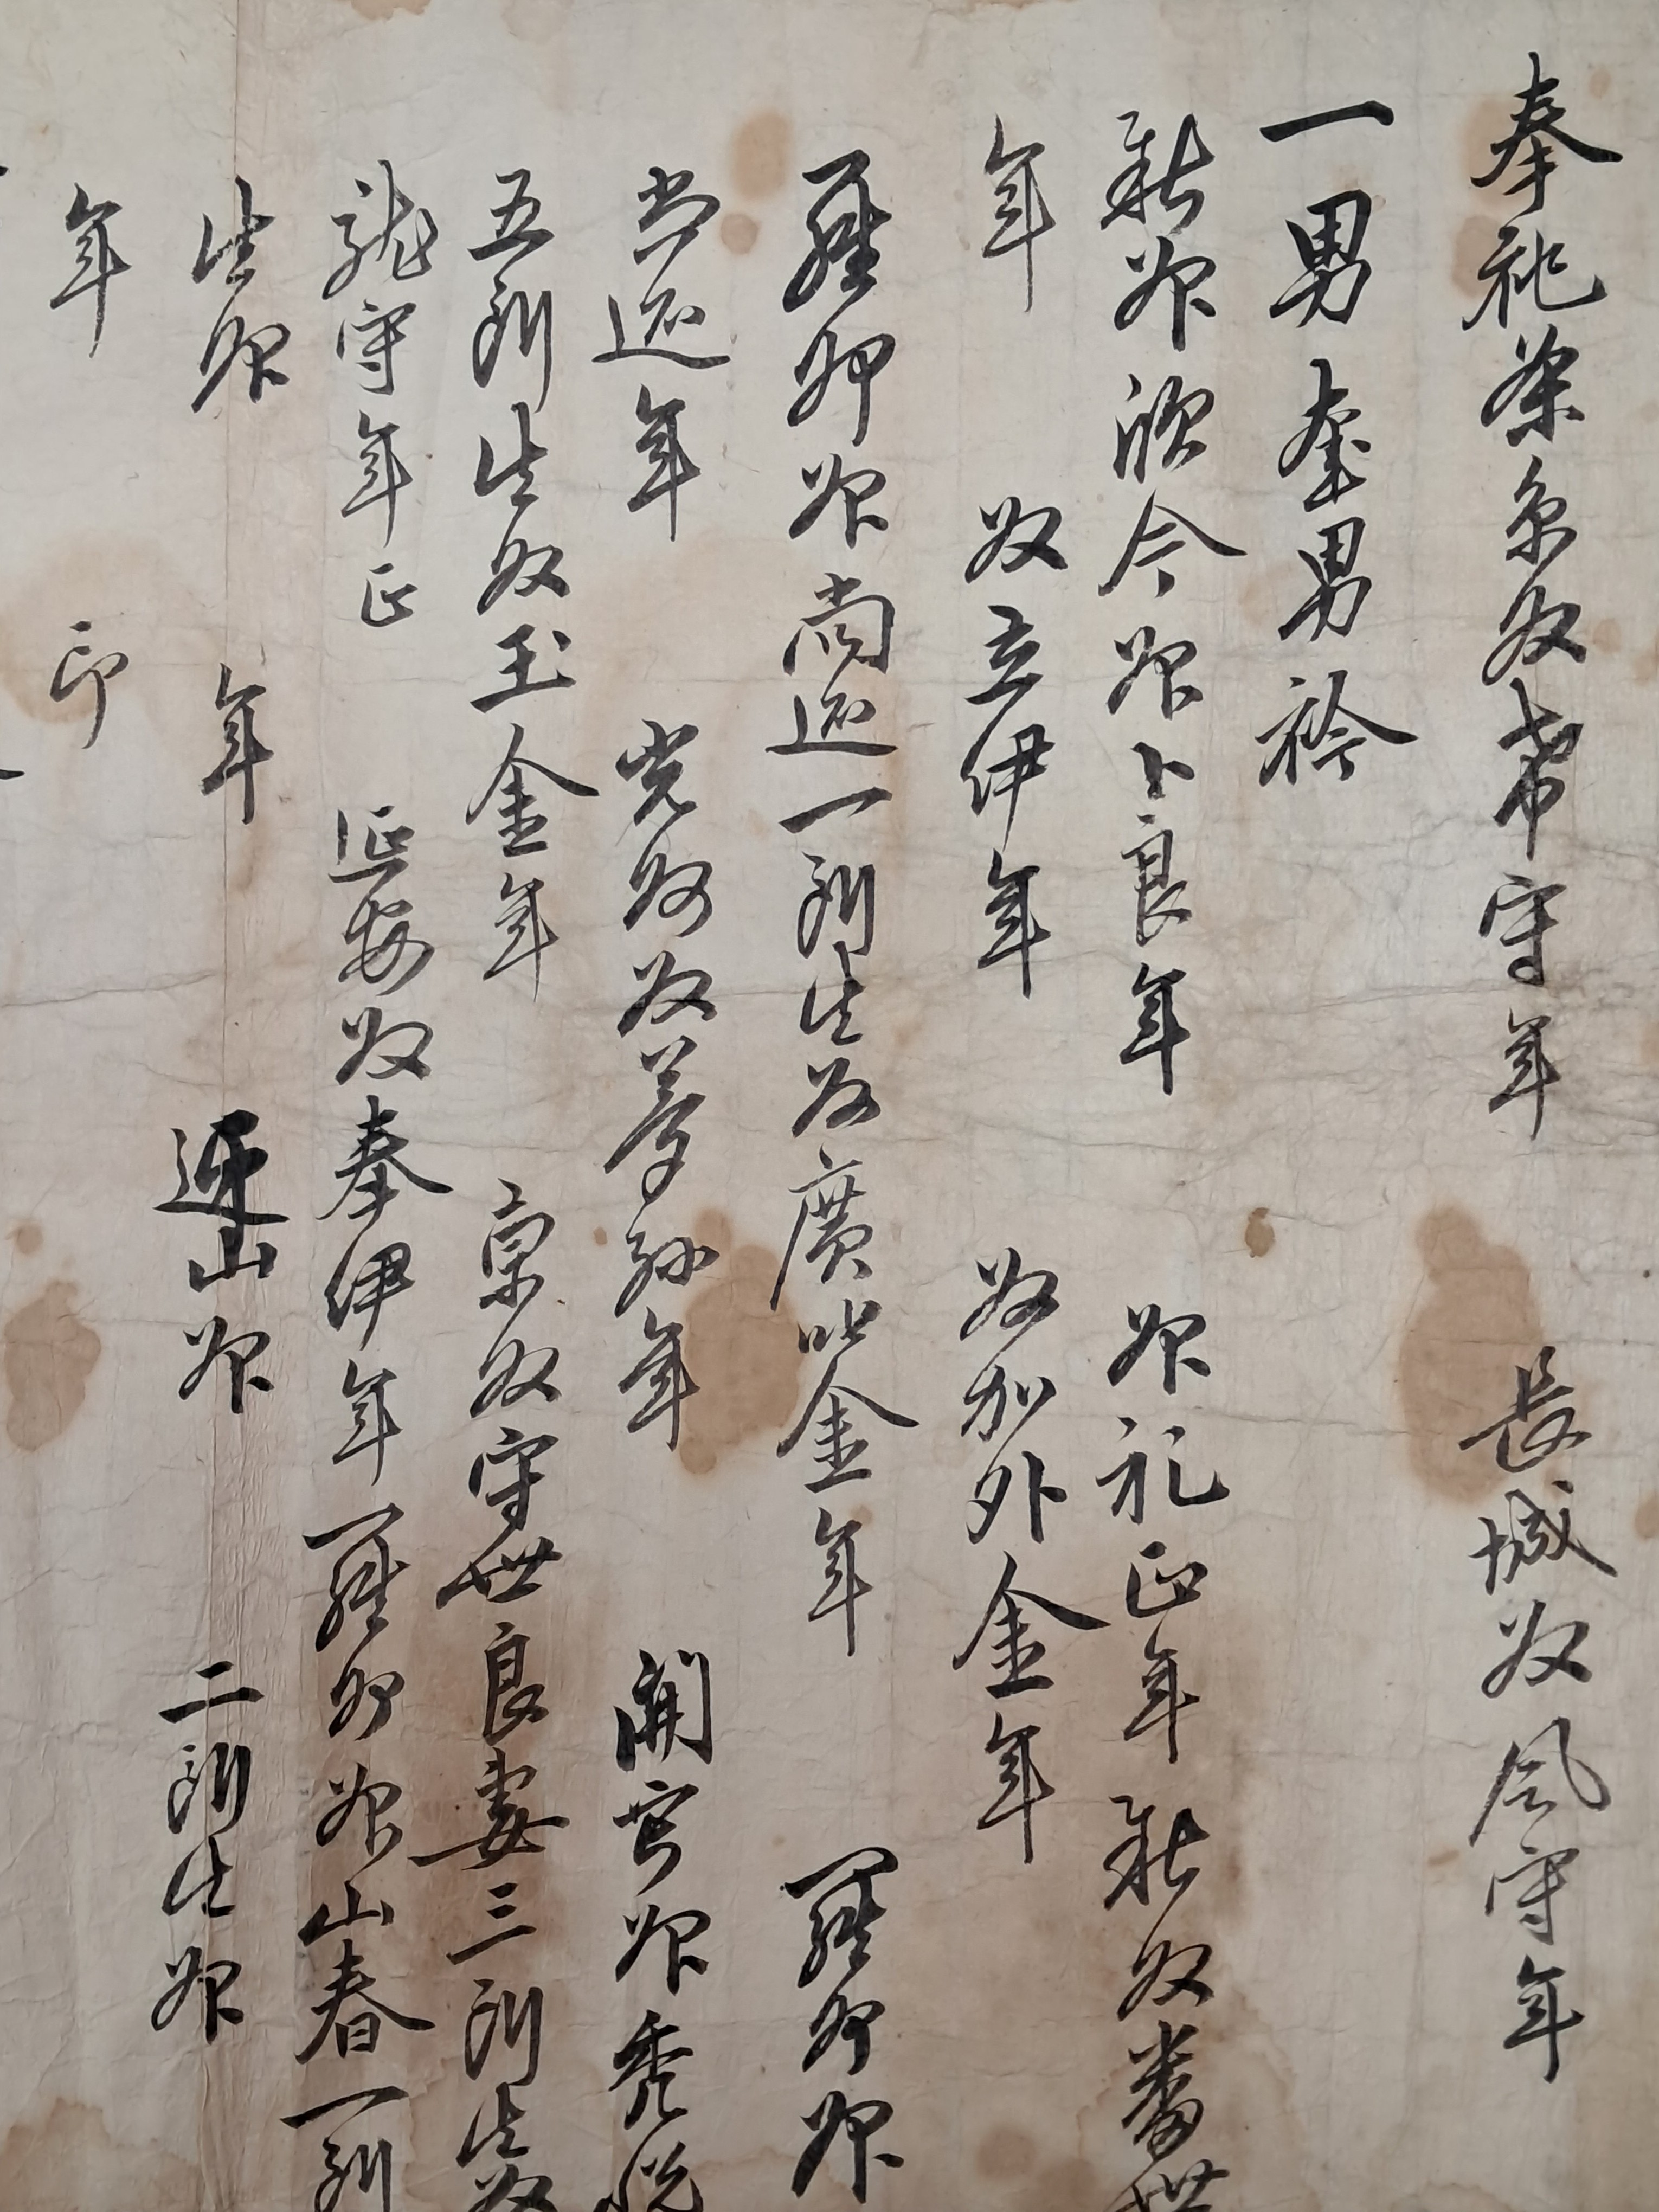 奉祀条京奴希守年 長城奴今風守年
一男奎男衿
新婢欣今婢卜良年 婢礼正年新奴番世
年 奴立伊年 奴加外金年
羅州婢尚巡一所生奴廣叱金年 羅州婢
尚巡年 光州奴夢孫年 開寧婢秀悅
五所生奴玉金年 京奴守世良妻三所生奴
龍守年正 延安奴奉伊年羅州婢山春一所
生婢 年 連山婢 二所生婢
年 印